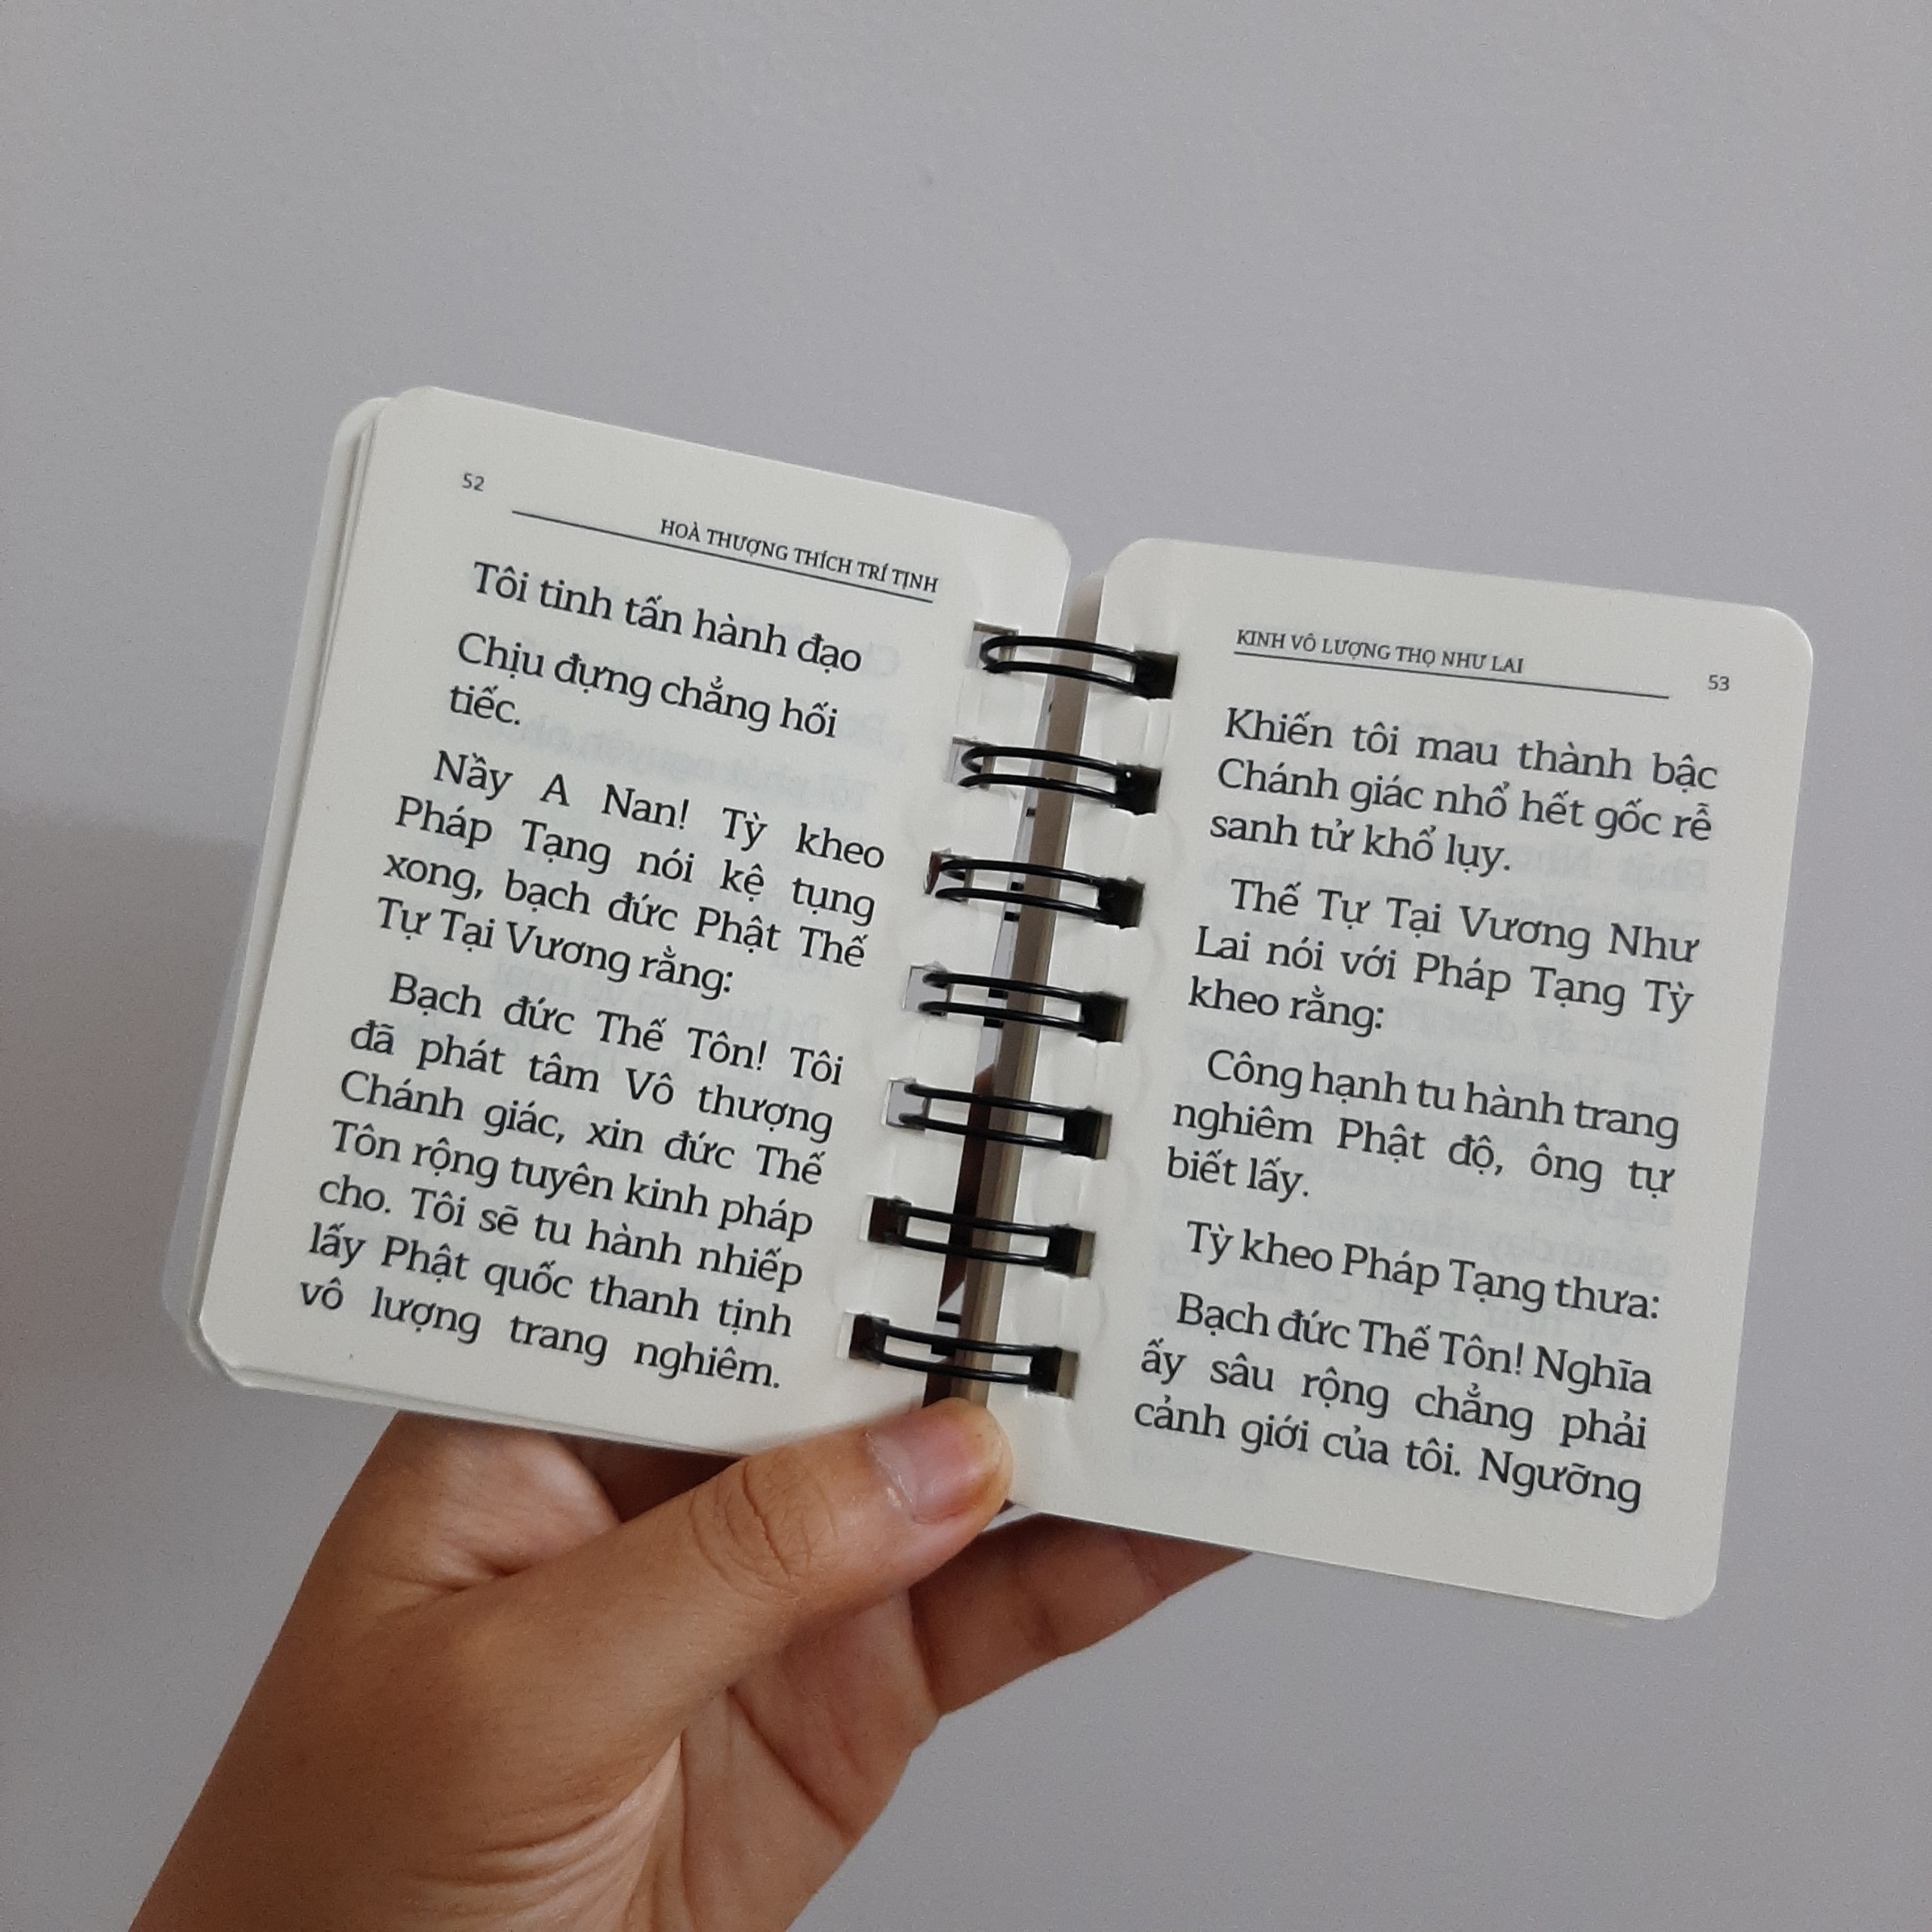 52
HOÀ THƯỢNG THÍCH TRÍ TỊNH
Tôi tinh tấn hành đạo
Chịu đựng chẳng hối
tiếc.
Nầy A Nan! Tỳ kheo
Pháp Tạng nói kệ tụng
xong, bạch đức Phật Thế
Tự Tại Vương rằng:
Bạch đức Thế Tôn! Tôi
đã phát tâm Vô thượng
Chánh giác, xin đức Thế
Tôn rộng tuyên kinh pháp
cho. Tôi sẽ tu hành nhiếp
lấy Phật quốc thanh tịnh
vô lượng trang nghiêm.
KINH VÔ LƯỢNG THỌ NHƯ LAI
53
Khiến tôi mau thành bậc
Chánh giác nhổ hết gốc rễ
sanh tử khổ lụy.
Thế Tự Tại Vương Như
Lai nói với Pháp Tạng Tỳ
kheo rằng:
Công hạnh tu hành trang
nghiêm Phật độ, ông tự
biết lấy.
Tỳ kheo Pháp Tạng thưa:
Bạch đức Thế Tôn! Nghĩa
ấy sâu rộng chẳng phải
cảnh giới của tôi. Ngưỡng